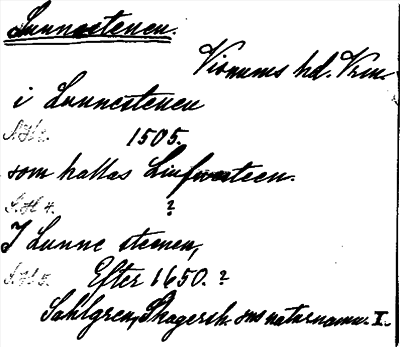 Lunnestenen.
Visnums hd. Vrm
i Lunnestenen
1505.
som kallas
S. 4.
?
I Lunne steenen,
S. 5. Efter 1650. ?
Sahlgren, Skagersh. sns naturnamn. I.